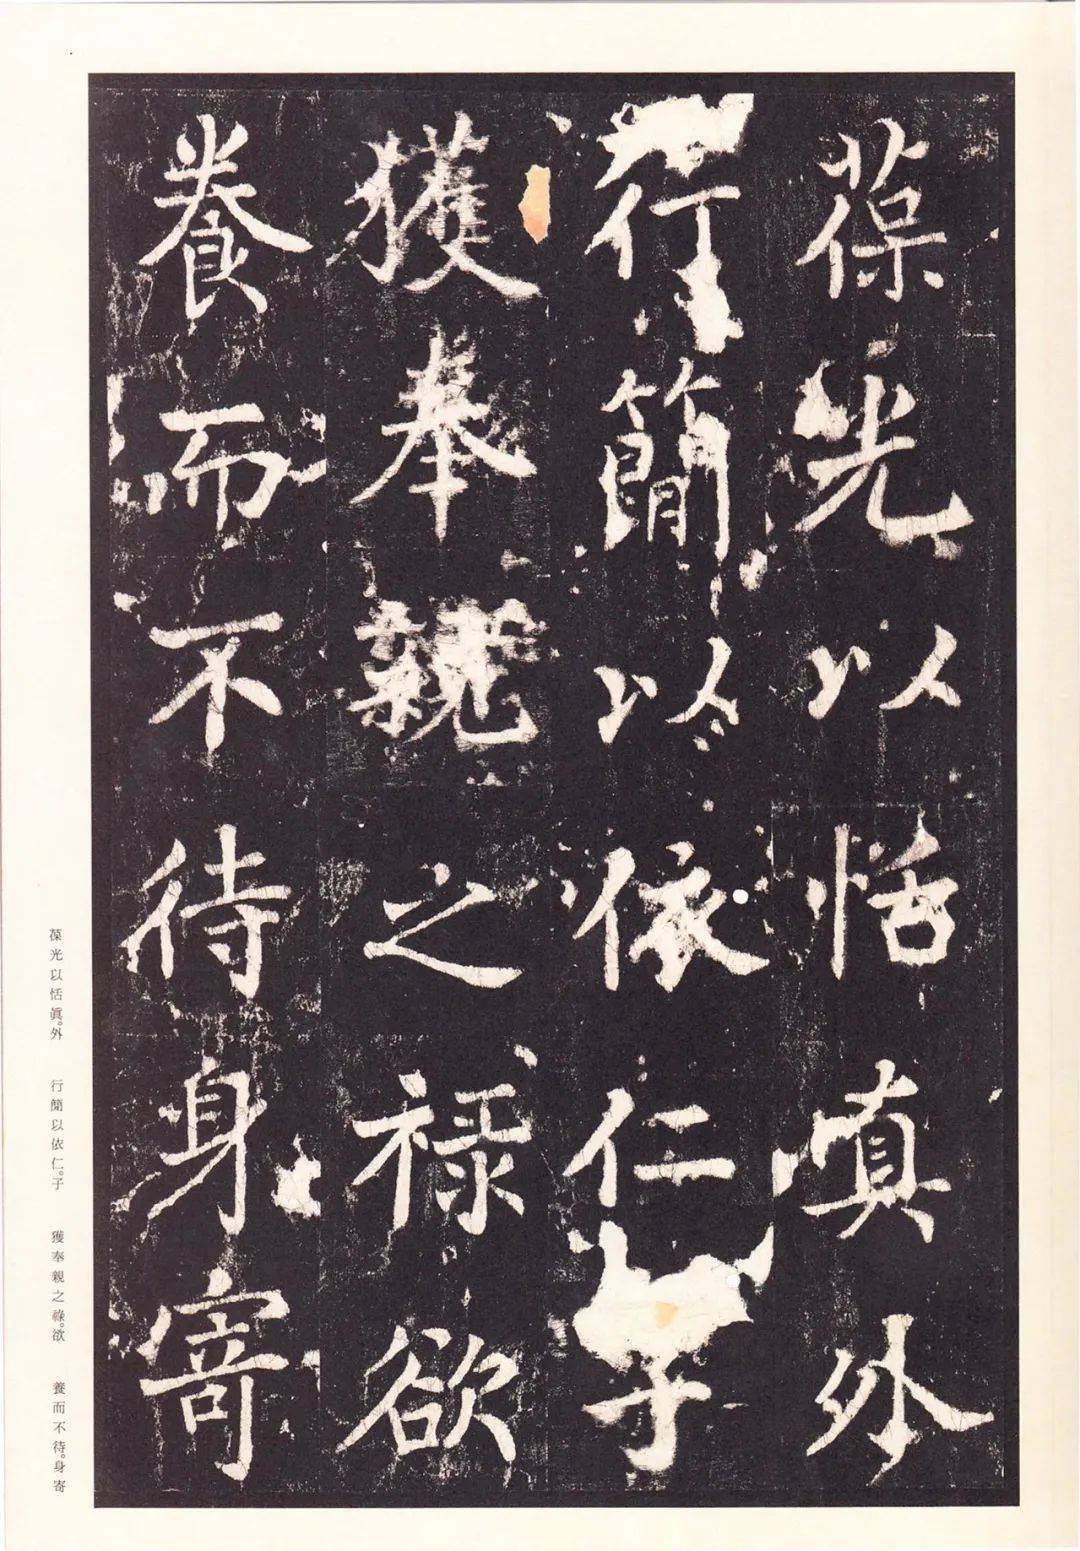 葆光以恬真外
行簡以依仁子
獲奉親之祿欲
養而不待身寄
葆光以恬眞。外　行簡以依仁。子　獲奉親之祿。欲　養而不待。身寄